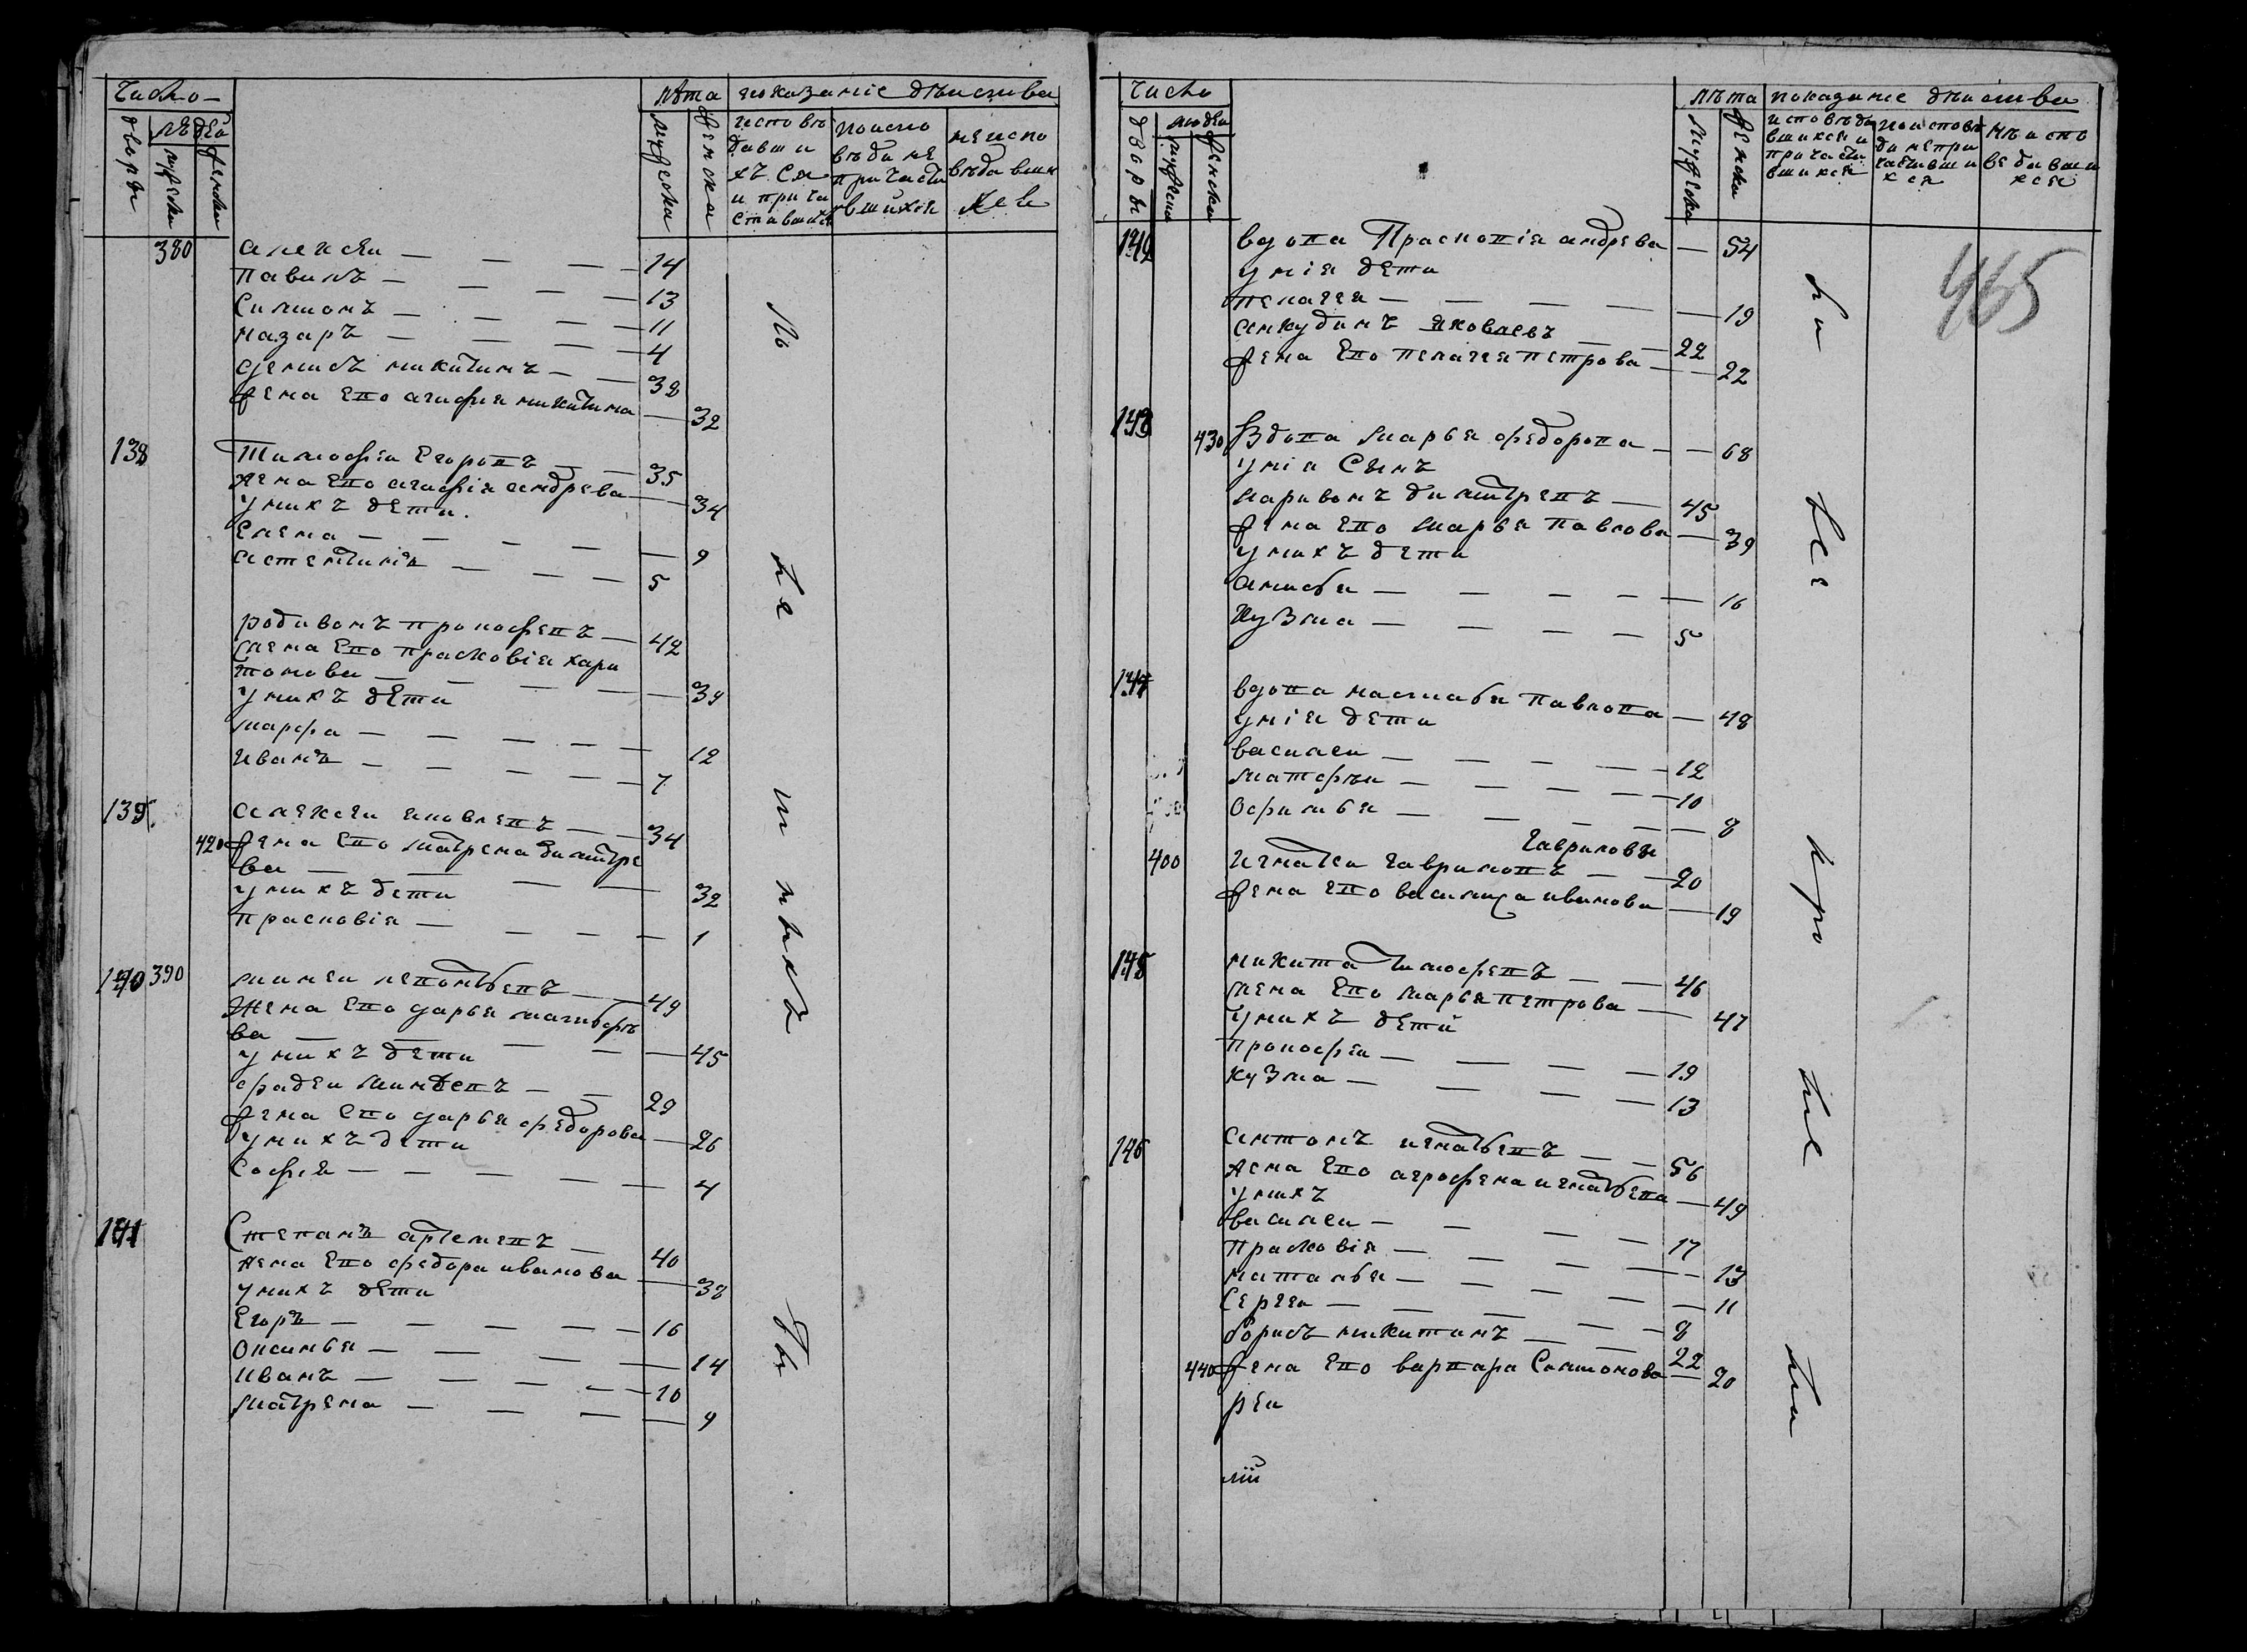 Число
лѣта показаніе дѣиства
дворы
людей
мужеска
женска
мужеска
женска
исповѣ
давши
хъ ся
и прича
стивших
поиспо
вѣди не
причасти
вшихся
неиспо
вѣдавши
хся
380 алексеи — 14
павилъ — 13
Силионъ — 11
назаръ — 4
денисъ никитинъ — 38
жена Его агафия никитина — 32
138 Тимофеи Егоровъ — 35
жена Его агафія андрева — 34
у них ъ дети.
Елена — 9
Астентинъ — 5
родивонъ прокофевъ — 42
жена Его прасковія хари
тонова — 39
у нихъ дети
марфа — 12
иванъ — 7
139 алексеи яковлевъ — 34
420 жена Его матрена дмитре
ва — 32
у нихъ дети
прасковія — 1
140 390 минеи леонтьевъ — 49
Жена Его дарья матьвѣ
ва — 45
у нихъ дети
фадеи минѣевъ — 29
жена Его дарья федорова — 26
у нихъ дети
Софья — 4
141 Степанъ артемевъ — 40
жена Его федора иванова — 38
у нихъ дети
Егоръ — 16
Оксинья — 14
иванъ — 10
матрена — 9
Число
лѣта показание дѣиства
дворы
людеи
мужеска
женски
мужеска
женска
исповѣда
вшихся и
причасти
вшихся
поисповѣ
ди непри
частивши
хся
неиспо
ведавши
хся
465
142 вдова Прасковія андрева — 54
у нія дети
пелагея — 19
анкудинъ яковлевъ — 22
жена Его пелагея петрова — 22
143 430 Вдова марья федорова — 68
у нія Сынъ
ларивонъ дмитревъ — 45
жена Его марья павлова — 39
у нихъ дети
анисья — 16
кузма — 5
144 вдова настасья павлова — 48
у нія дети
василеи — 12
матфѣи — 10
Офимья — 8
гавриловы
400 игнатеи гавриловъ — 20
жена Его василиса иванова — 19
145 никита тимофевъ — 46
жена Его марья петрова — 47
у нихъ дети
прокофеи — 19
кузма — 13
146 антонъ игнатьевъ — 56
жена Его агрофена игнатьева — 49
у нихъ
василеи — 17
прасковія — 13
наталья — 11
Сергеи — 8
борисъ никитинъ — 22
440 жена Его варвара Солтонова — 20
реи